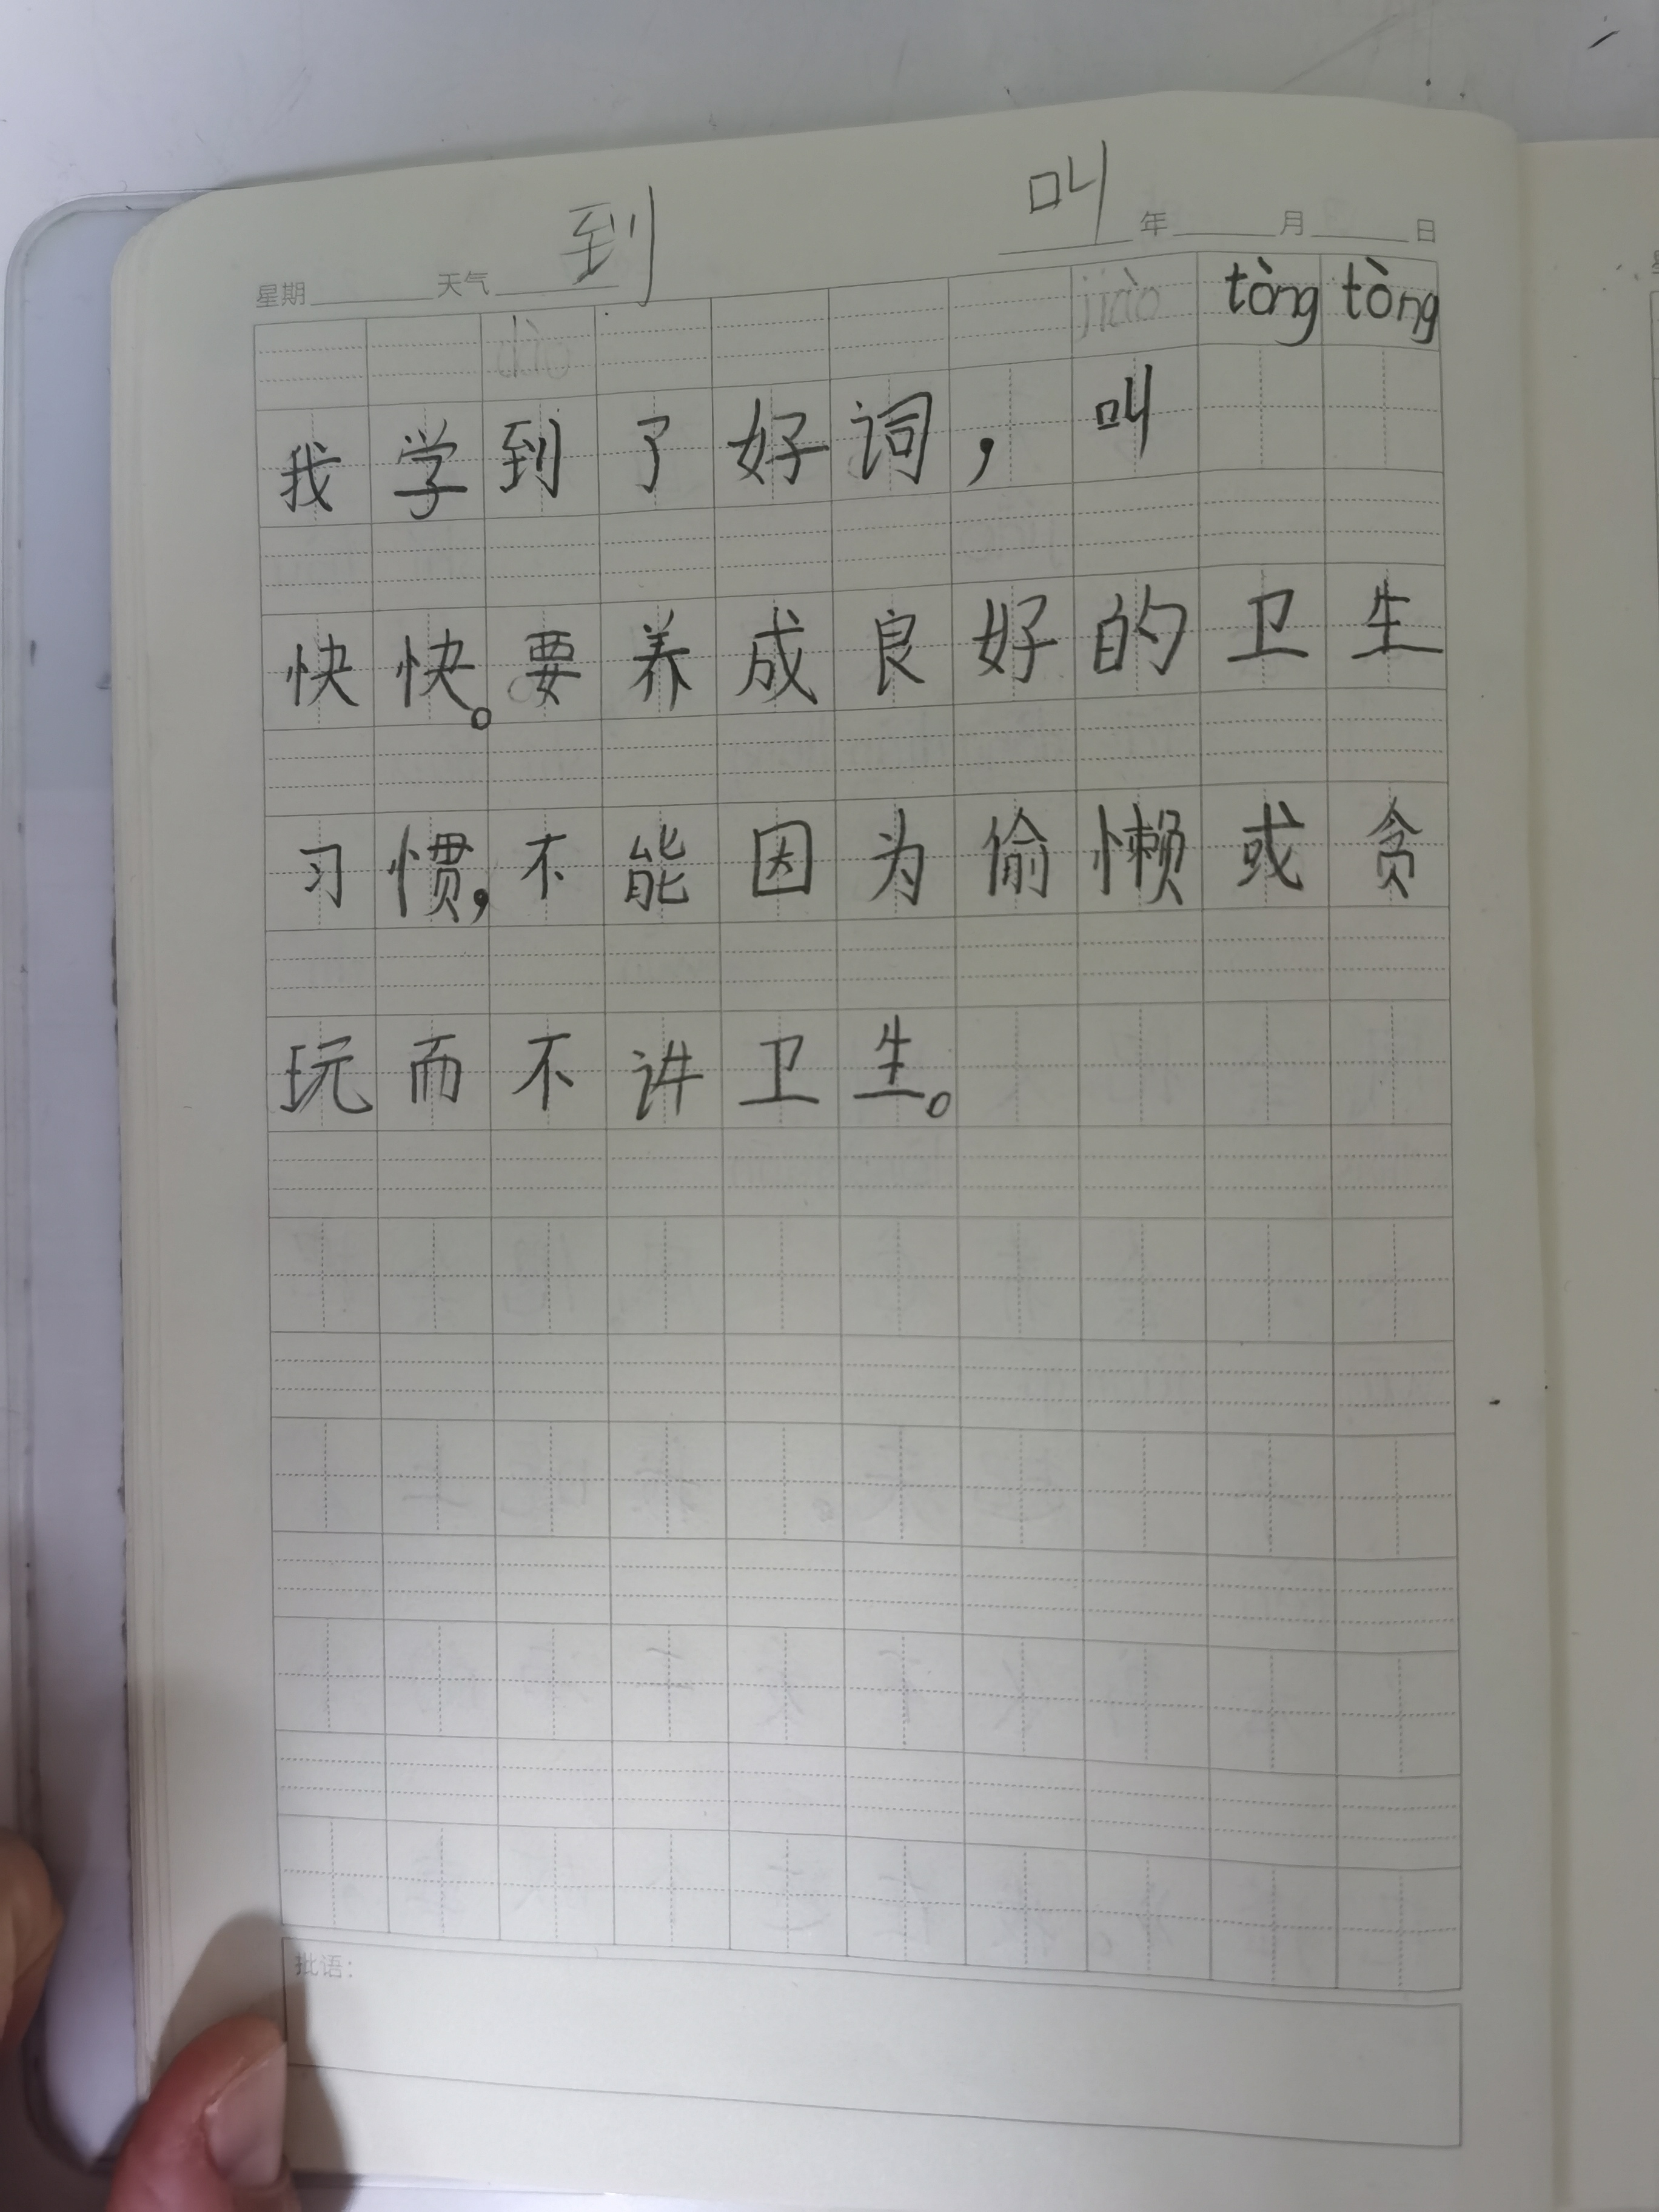 到 叫 年 月 日
星期 天气
tòng tòng
我学到了好词，叫
快快。要养成良好的卫生
习惯，不能因为偷懒或贪
玩而不讲卫生。
批语：